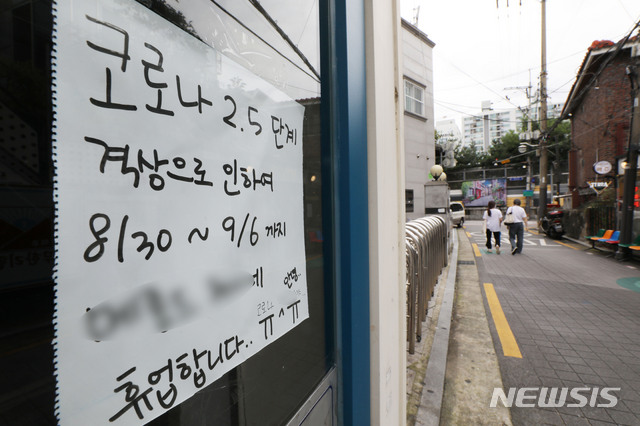 코로나 2.5 단계
격상으로 인하여
8/30 ~ 9/6 까지
에 안녕..
코로나
ㅠ^ㅠ
휴업합니다..
NEWSIS